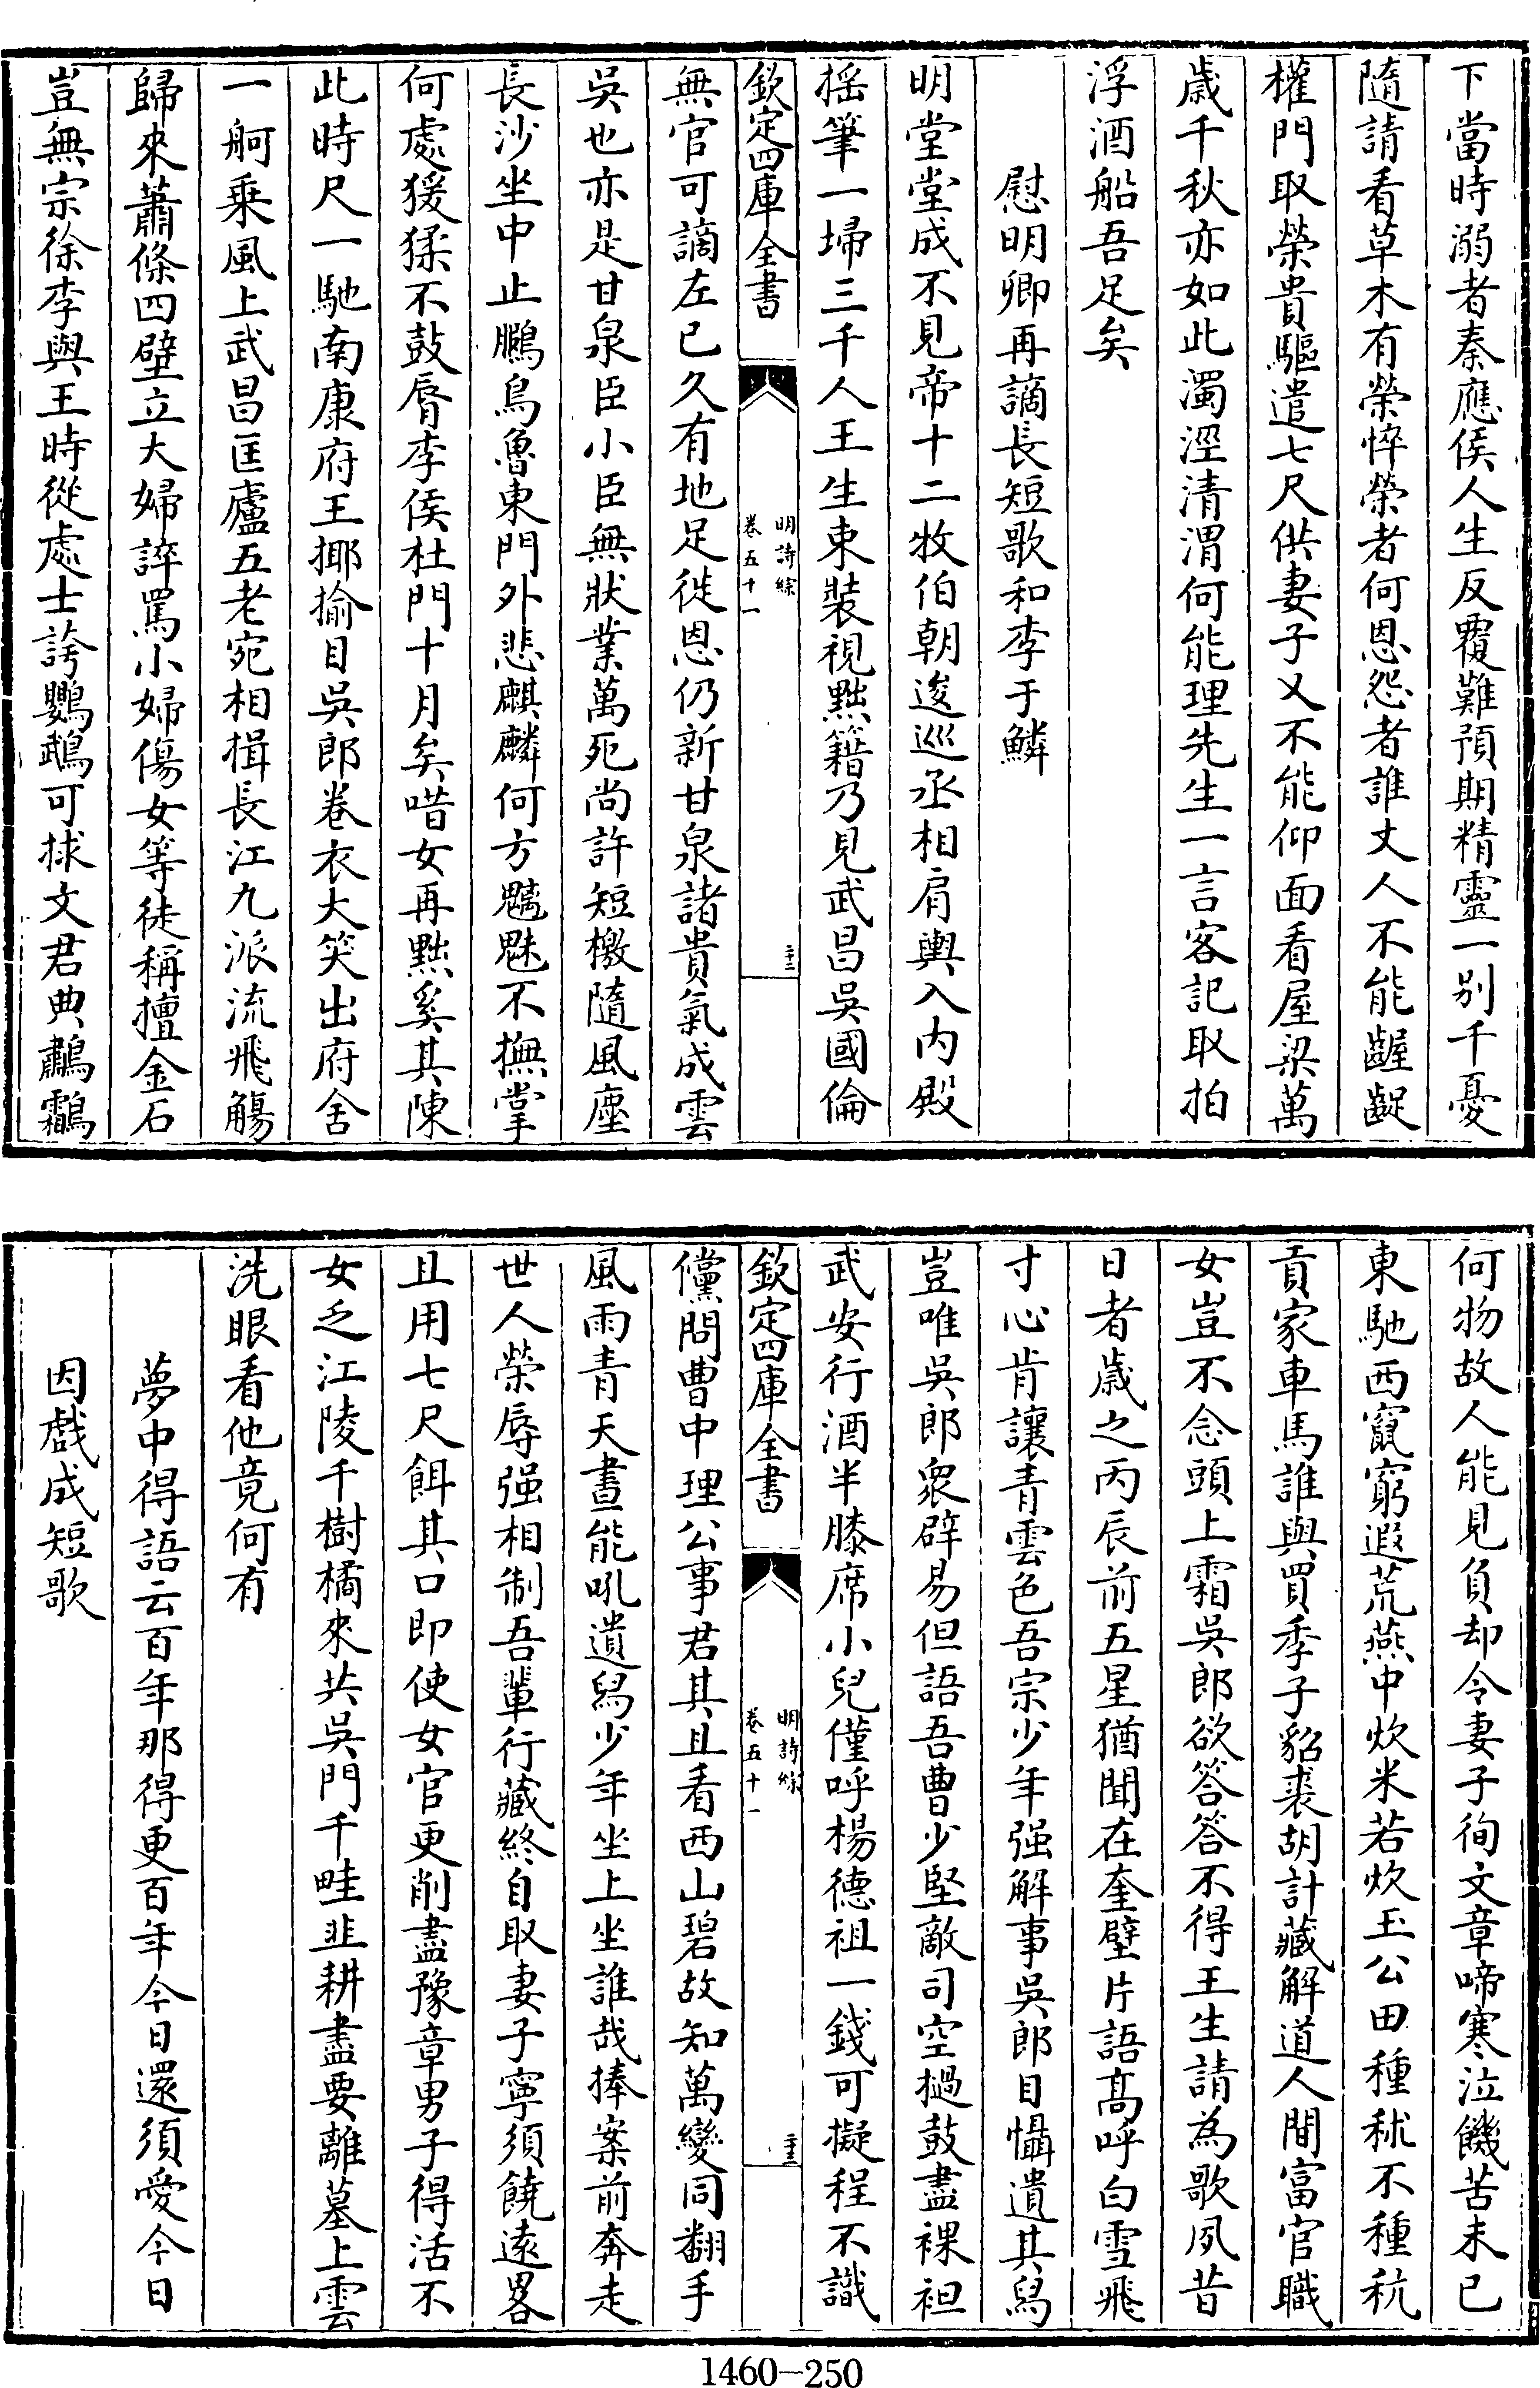 下當時溺者秦應侯人生反覆難預期精靈一别千憂
隨請看草木有榮悴榮者何恩怨者誰丈人不能齷齪
權門取榮貴驅遣七尺供妻子又不能仰面看屋梁萬
歲千秋亦如此濁涇清渭何能理先生一言客記取拍
浮酒船吾足矣
慰明卿再謫長短歌和李于鱗
明堂堂成不見帝十二牧伯朝逡巡丞相肩輿入内殿
摇筆一埽三千人王生束裝視黜籍乃見武昌吳國倫
欽定四庫全書
明詩綜
卷五十一
二十二
無官可謫左已久有地足徙恩仍新甘泉諸貴氣成雲
吳也亦是甘泉臣小臣無狀業萬死尚許短檄隨風塵
長沙坐中止鵩鳥魯東門外悲麒麟何方魑魅不撫掌
何處猨猱不鼓脣李侯杜門十月矣唶女再黜奚其陳
此時尺一馳南康府王揶揄目吳郎卷衣大笑出府舍
一舸乗風上武昌匡廬五老宛相揖長江九派流飛觴
歸來蕭條四壁立大婦誶罵小婦傷女等徒稱擅金石
豈無宗徐李與王時從處士誇鸚鵡可捄文君典鷫鸘
何物故人能見負却令妻子徇文章啼寒泣饑苦未已
東馳西竄窮遐荒燕中炊米若炊玉公田種秫不種秔
貢家車馬誰與買季子貂裘胡計藏解道人間富官職
女豈不念頭上霜吳郎欲答答不得王生請為歌夙昔
日者歲之丙辰前五星猶聞在奎壁片語高呼白雪飛
寸心肯讓青雲色吾宗少年强解事吳郎目懾遺其舄
豈唯吳郎衆辟易但語吾曹少堅敵司空撾鼓盡裸袒
武安行酒半膝席小兒僅呼楊德祖一錢可擬程不識
欽定四庫全書
明詩綜
卷五十一
二十三
儻問曹中理公事君其且看西山碧故知萬變同翻手
風雨青天晝能吼遺舄少年坐上坐誰哉捧案前奔走
世人榮辱强相制吾輩行藏終自取妻子寧須饒遠畧
且用七尺餌其口即使女官更削盡豫章男子得活不
女乏江陵千樹橘來共吳門千畦韭耕盡要離墓上雲
洗眼看他竟何有
夢中得語云百年那得更百年今日還須愛今日
因戲成短歌
1460-250